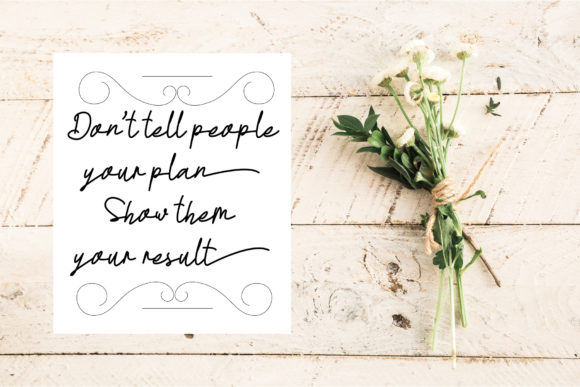 Don't tell people
your plan
Show them
your result